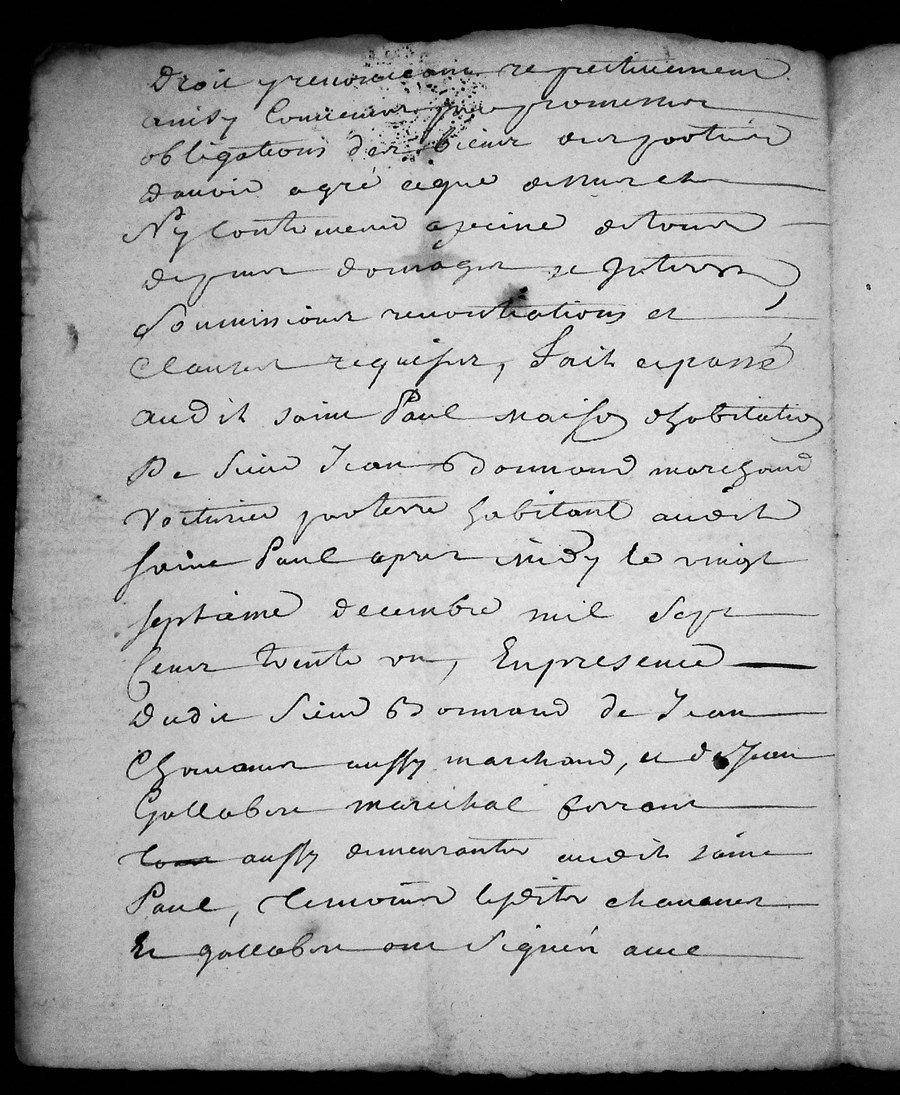 Droit y renoncant respectivement
ainsy Convenu par promesses
obligations des biens des parties
davoir agré ceque dessus et
Ny Contrevenir apeine de tous
depens domages et Interets
Soumissions renontiations et
Clauses requises, Fait et passé
audit saint Paul maison dhabitation
De Sieur Jean Bonnand marchand
Voiturier par terre habitant audit
saint Paul apres midy le vingt
septieme decembre mil sept
Cents trente un, En presence
Dudit Sieur Bonnand de Jean
Chavanes aussy marchand, et de Jean
Gollabere marechal ferrant
aussy demeurants audit saint
Paul, temoins lesdits chavanes
Et gollabere ont signés avec